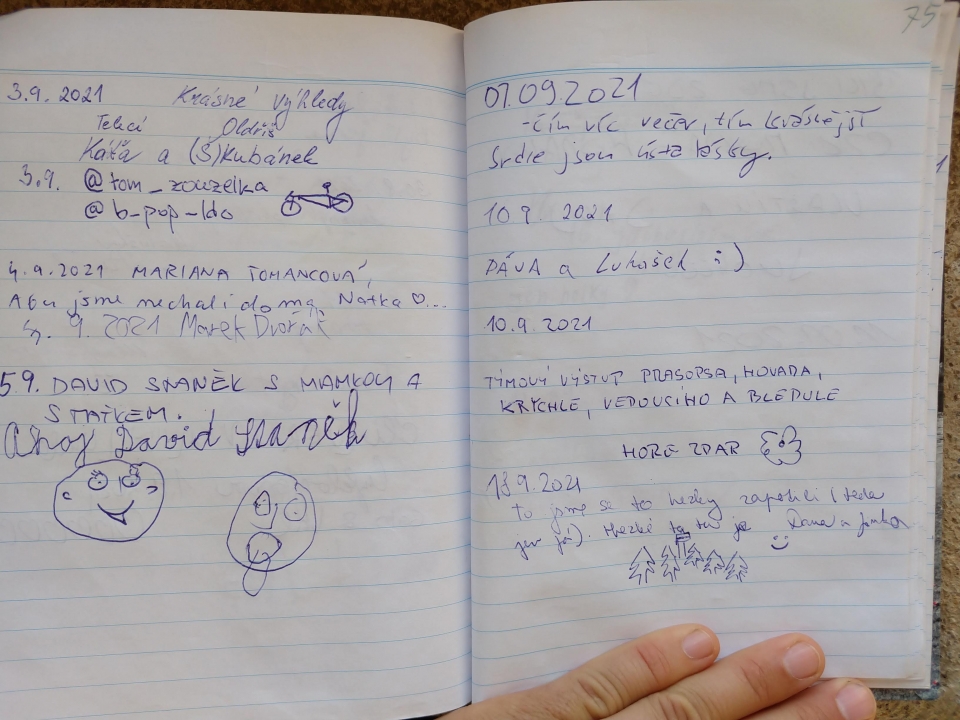 3.9. 2021 Krásné výhledy
Telcí Oldřiš
Káťa a (Š)kubánek
3.9. @tom_zouzelka
@b-pop-ldo
4.9.2021 MARIANA TOMANCOVÁ,
jsme nechali doma, Natka ♡...
5. 9. 2021 Marek Dvořák
5 9. DAVID STANĚK S MAMKOU A
S TAŤKEM.
Ahoj David Staněk
75
07.09.2021
-čím víc večer, tím krásnější
Srdce jsou ústa lásky.
10 9. 2021
PÁVA a Lukášek :)
10.9.2021
TÝMOVÝ VÝSTUP PRASOPSA, HOVADA,
KRYCHLE, VEDOUCÍHO A BLEDULE
HORE ZDAR
18.9.2021
To jsme se to hezky zapotili (teda
jen já). Hezké to tu je Dana a